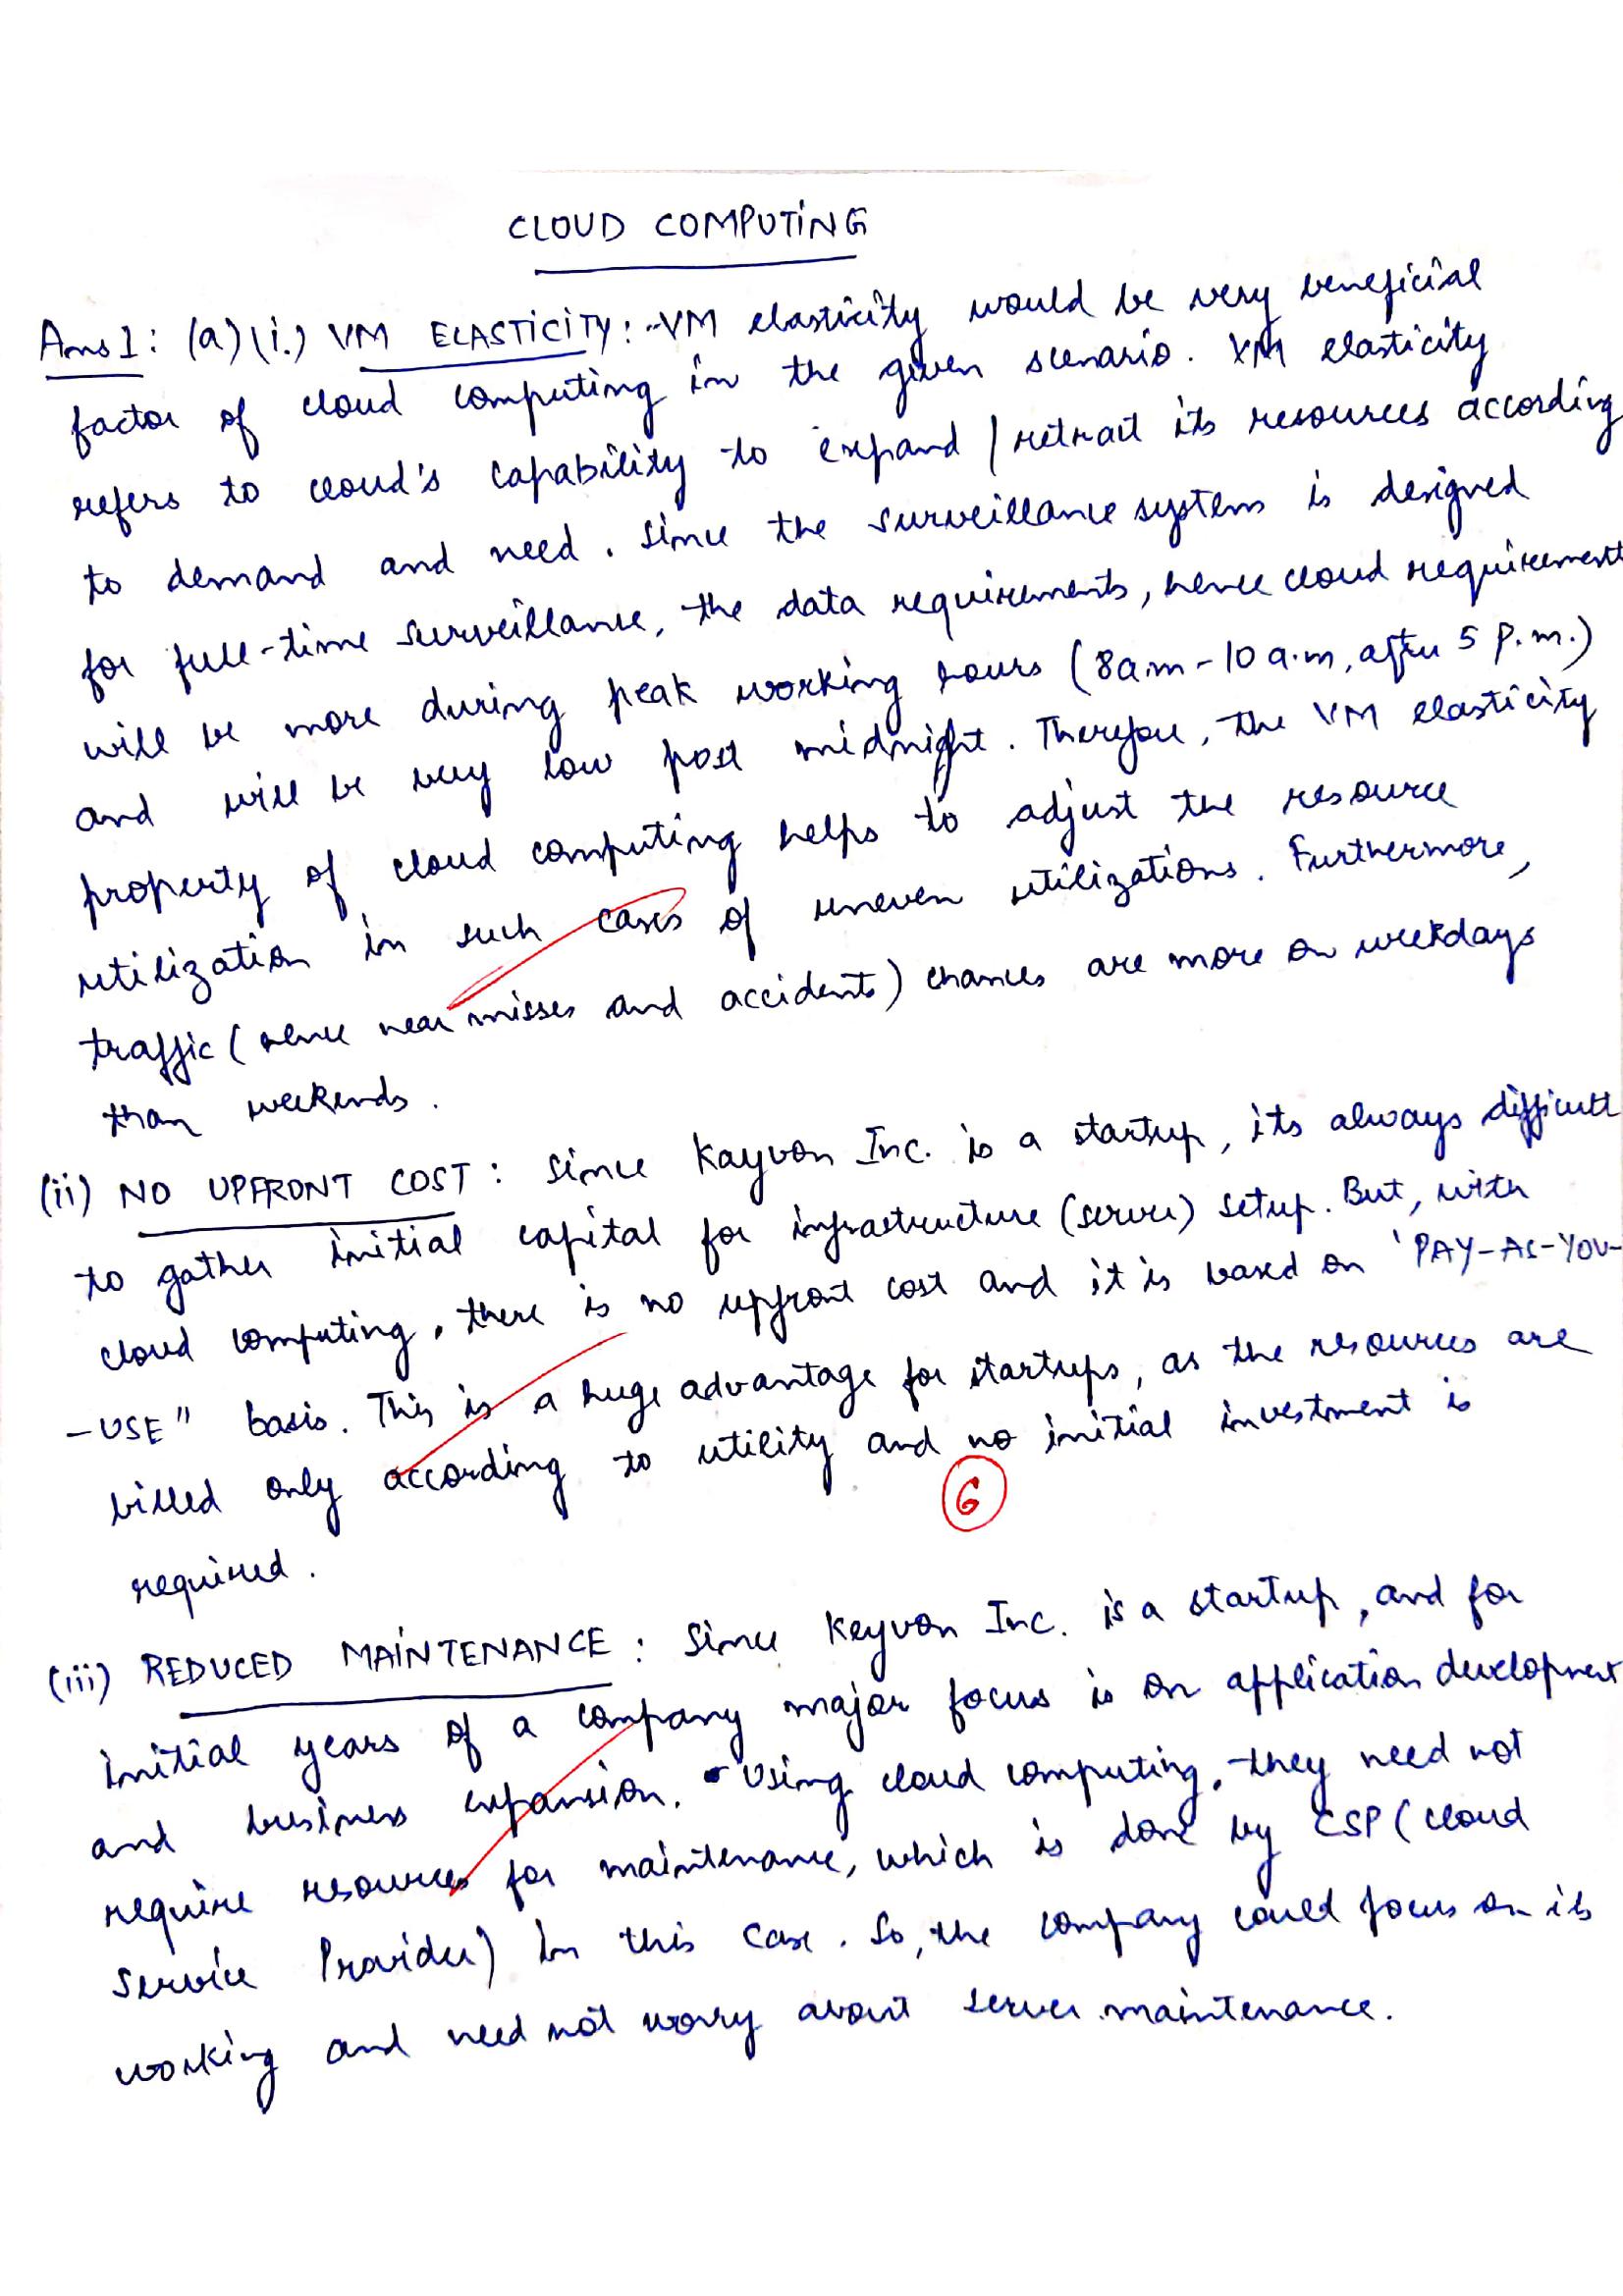 CLOUD COMPUTING
Ans 1: (a)(i.) VM ELASTICITY: VM elasticity would be very beneficial
factor of cloud computing in the given scenario. VM elasticity
refers to cloud's capability to expand / retrait its resources according
to demand and need. Since the surveillance system is designed
for full-time surveillance, the data requirements, hence cloud requirement
will be more during peak working hours (8a.m-10 a.m, after 5 p.m.)
and will be very low post midnight. Therefore, the VM elasticity
property of cloud computing helps to adjust the resource
utilization in such cases of uneven utilizations. Furthermore,
traffic (hence near misses and accidents) chances are more on weekdays
than weekends.
(ii) NO UPFRONT COST: Since Kayvon Inc. is a startup, its always difficult
to gather initial capital for infrastructure (server) setup. But, with
cloud computing, there is no upfront cost and it is based on 'PAY-AS-YOU-
-USE" basis. This is a huge advantage for startups, as the resources are
billed only according to utility and no initial investment is
6
required.
(iii) REDUCED MAINTENANCE: Since Keyvon Inc. is a startup, and for
initial years of a company major focus is on application development
and business expansion. Using cloud computing, they need not
require resources for maintenance, which is done by CSP (cloud
Service Provider) in this case. So, the company could focus on its
working and need not worry about server maintenance.